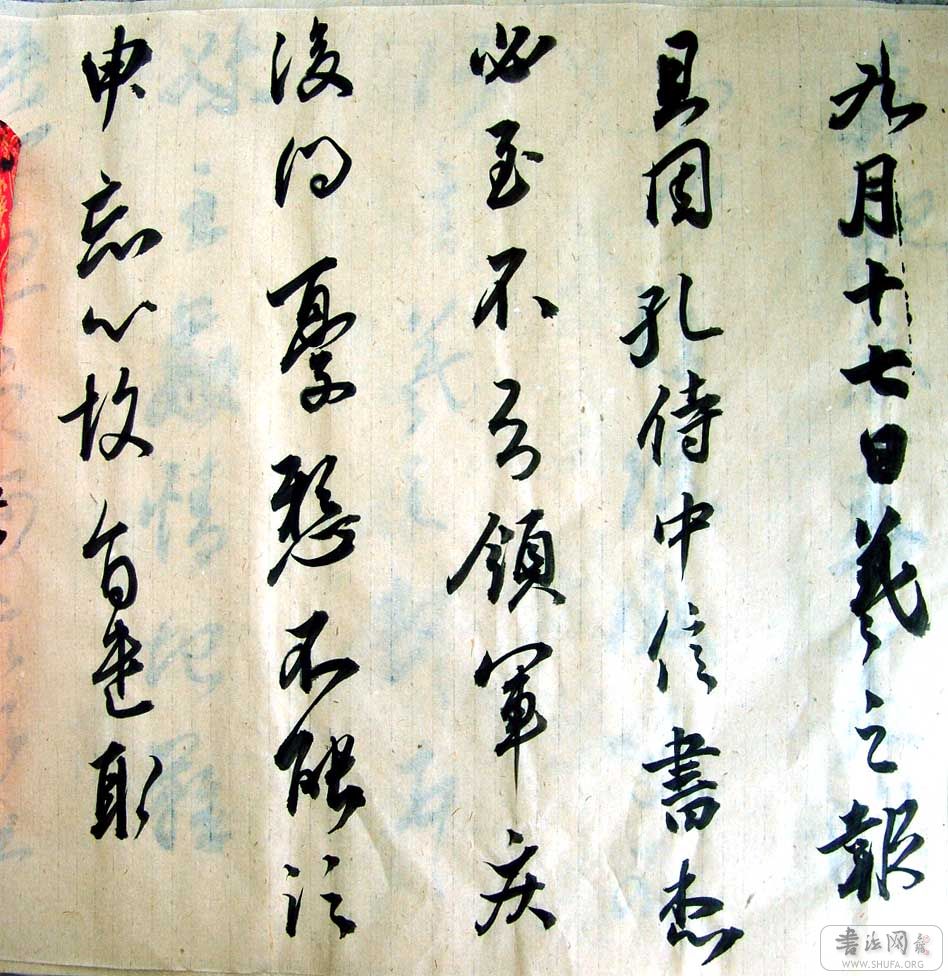 九月十七日羲之報
且因孔侍中信書想
必至不知領軍疾
後問憂懸不能須
臾忘心故旨遣取
書法网
WWW.SHUFA.ORG